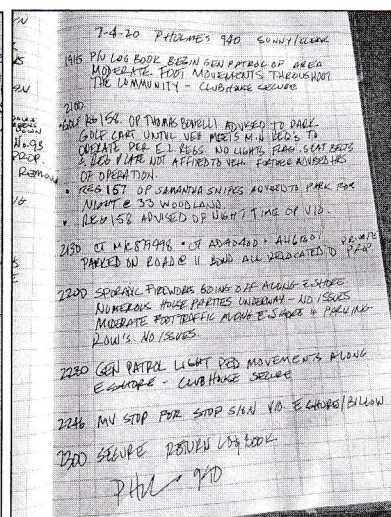 7-4-20 P HOLMES 940 SUNNY/CLEAR
1915 P/U LOG BOOK BEGIN GEN PATROL OF AREA
MODERATE FOOT MOVEMENTS THROUGHOUT
THE COMMUNITY - CLUBHOUSE SECURE
2100
GOLF REG 158. OP THOMAS BONELLI ADVISED TO PARK
GOLF CART UNTIL VEH MEETS MIN REQ'S TO
OPERATE PER E.I. REGS. NO LIGHTS FLAG. SEAT BELTS
& REG PLATE NOT AFFIXED TO VEH. FURTHER ADVISED HRS
OF OPERATION.
• REG 157 OP SAMANTHA SNIPES ADVISED TO PARK FOR
NIGHT @ 33 WOODLAND.
• REG 158 ADVISED OF NIGHT TIME OP VIO.
2130 CT MK87998 • CT AD40400 • AH61001 PRIVATE
PARKED ON ROAD @ 11 BOND ALL RELOCATED TO PROP.
2200 SPORADIC FIREWORKS GOING OFF ALONG E SHORE
NUMEROUS HOUSE PARTIES UNDERWAY - NO ISSUES
MODERATE FOOT TRAFFIC ALONG E SHORE & PARKING
ROW'S. NO ISSUES.
2230 GEN PATROL LIGHT PED MOVEMENTS ALONG
E SHORE - CLUBHOUSE SECURE
2246 MV STOP FOR STOP SIGN VIO E SHORE/BILLOW
2300 SECURE RETURN LOG BOOK
940
No. 93
PROP.